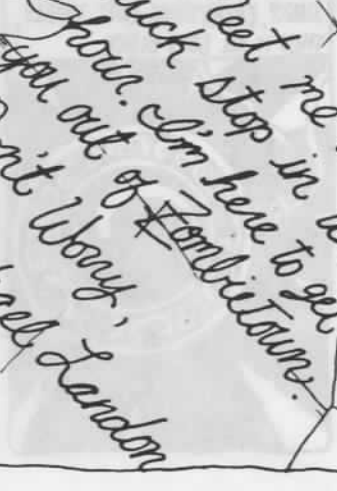 eet me
uck stop in
hour. I'm here to get
you out of Zombietown.
n't Worry,
ael Landon